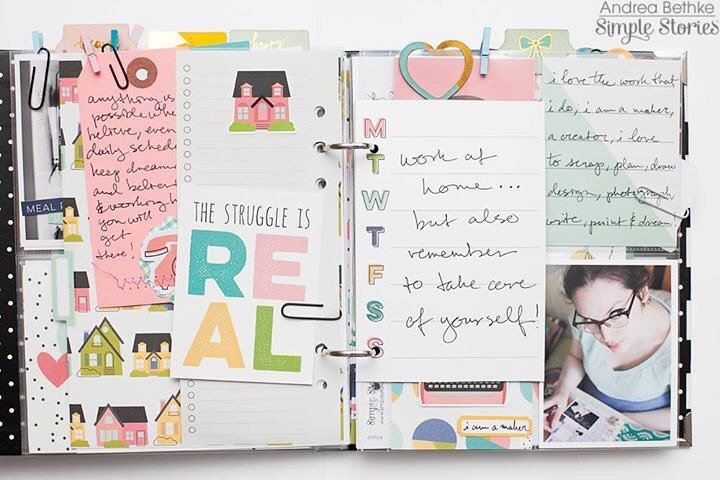 Andrea Bethke
Simple Stories
happy
anything is
possible when
believe, even
daily schedu
keep dream
and believ
& working h
you will
get
there!
MEAL P
THE STRUGGLE IS
REAL
M
T
W
T
F
S
S
work at
home...
but also
remember
to take care
of yourself!
i love the work that
i do, i am a maker,
a creator, i love
to scrap, plan, draw
design, photograph
write, paint & dream
Simple Stories
i am a maker